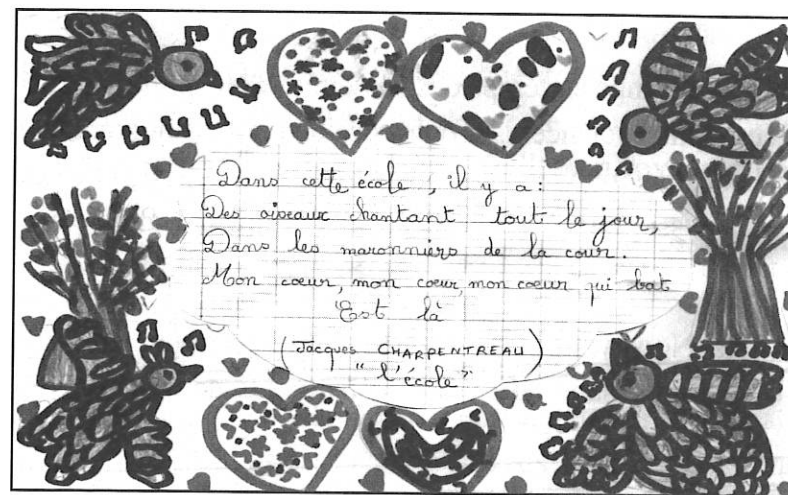 Dans cette école, il y a :
Des oiseaux chantant tout le jour,
Dans les maronniers de la cour.
Mon coeur, mon coeur, mon coeur qui bat
Est là
(Jacques CHARPENTREAU)
"l'école"